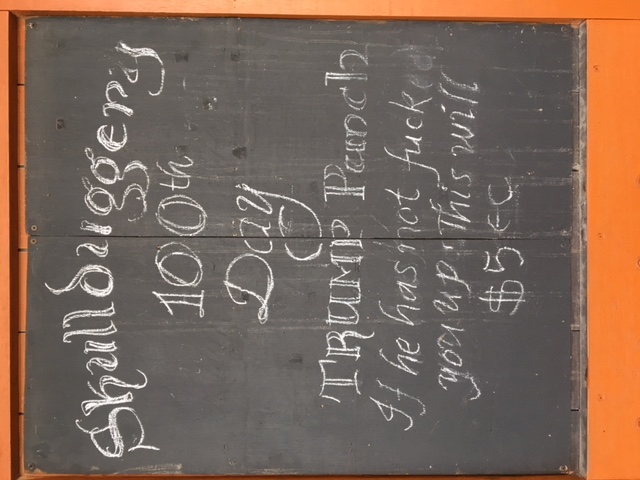 Skullduggery
100th
Day
TRUMP Punch
If he has not fucked
you up. This will
$5 EC